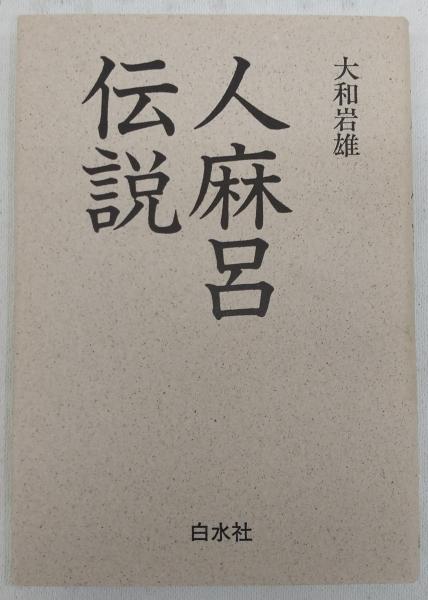 大和岩雄
人麻呂
伝説
白水社